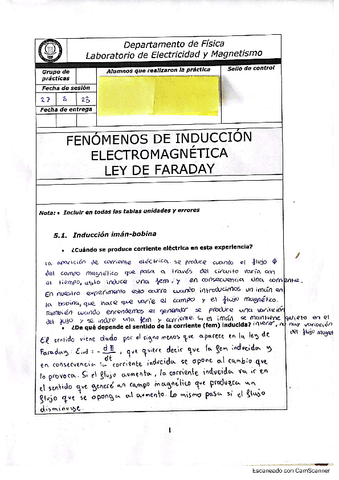 Departamento de Física
Laboratorio de Electricidad y Magnetismo
Grupo de prácticas
Alumnos que realizaron la práctica
Sello de control
Fecha de sesión
27 2 23
Fecha de entrega
FENÓMENOS DE INDUCCIÓN
ELECTROMAGNÉTICA
LEY DE FARADAY
Nota: • Incluir en todas las tablas unidades y errores
5.1. Inducción imán-bobina
• ¿Cuándo se produce corriente eléctrica en esta experiencia?
La aparición de corriente eléctrica se produce cuando el flujo ϕ
del campo magnético que pasa a través del circuito varía con
el tiempo, esto induce una fem, y en consecuencia una corriente.
En nuestro experimento esto ocurre cuando introducimos un imán en
la bobina, que hace que varíe el campo y el flujo magnético.
También cuando encendemos el generador se produce una variación
del flujo y se induce una fem y corriente. Si el imán se mantiene quieto en el
interior, no hay variación
del flujo magnético
• ¿De qué depende el sentido de la corriente (fem) inducida?
El sentido viene dado por el signo menos que aparece en la ley de
Faraday. Eind = - dΦ/dt, que quiere decir que la fem inducida y
en consecuencia la corriente inducida se opone al cambio que
lo provoca. Si el flujo aumenta, la corriente inducida va ir en
el sentido que generé un campo magnético que produzca un
flujo que se oponga al aumento. Lo mismo pasa si el flujo
disminuye.
1
Escaneado con CamScanner